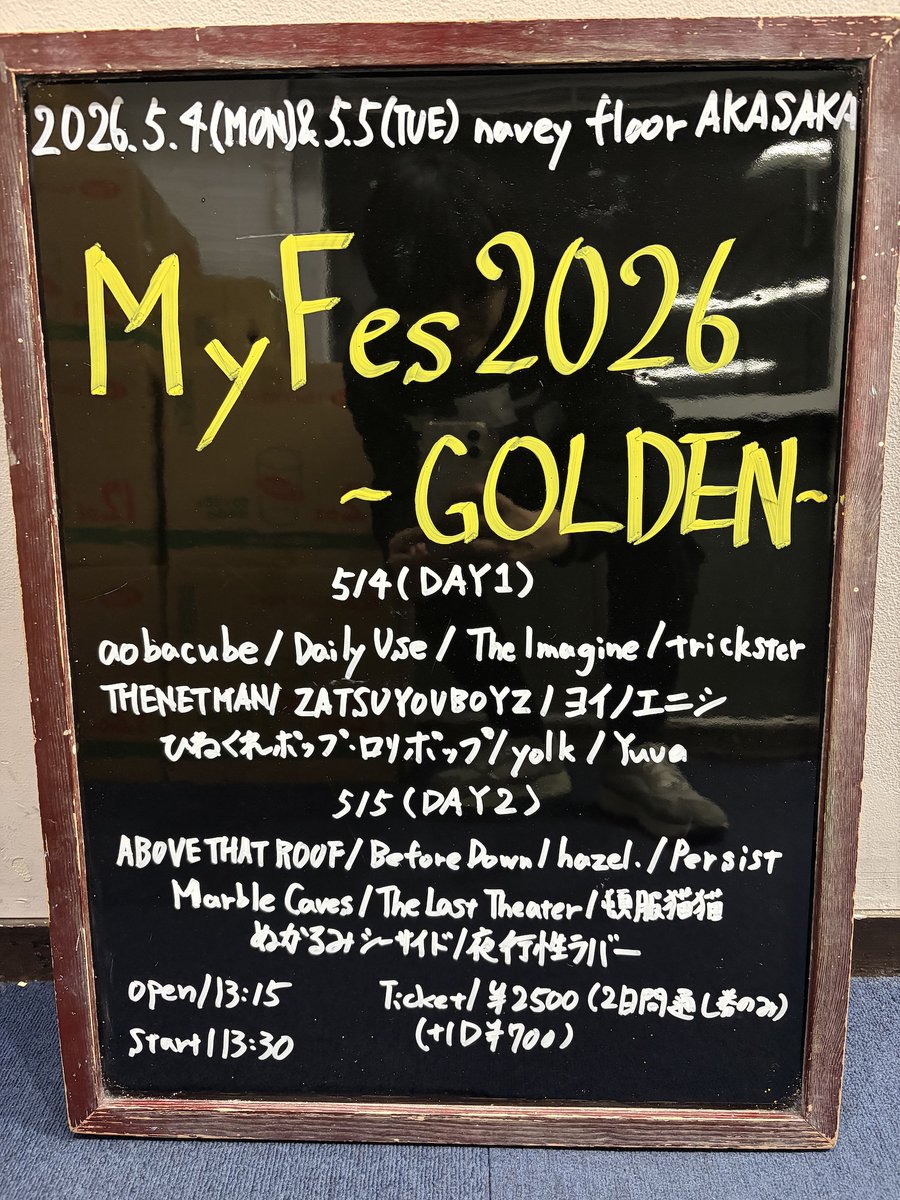 2026.5.4(MON)&5.5(TUE) navey floor AKASAKA
MyFes2026
~GOLDEN~
5/4(DAY1)
aobacube/Daily Use/The Imagine/trickster
THENETMAN/ZATSUYOUBOYZ/ヨイノエニシ
ひねくれポップ・ロリポップ/yolk/Yuva
5/5(DAY2)
ABOVE THAT ROOF/Before Down/hazel./Persist
Marble Caves/The Last Theater/頓服猫猫
ぬかるみシーサイド/夜行性ラバー
open/13:15
Ticket/¥2500(2日間通し券のみ)
start/13:30
(+1D¥700)